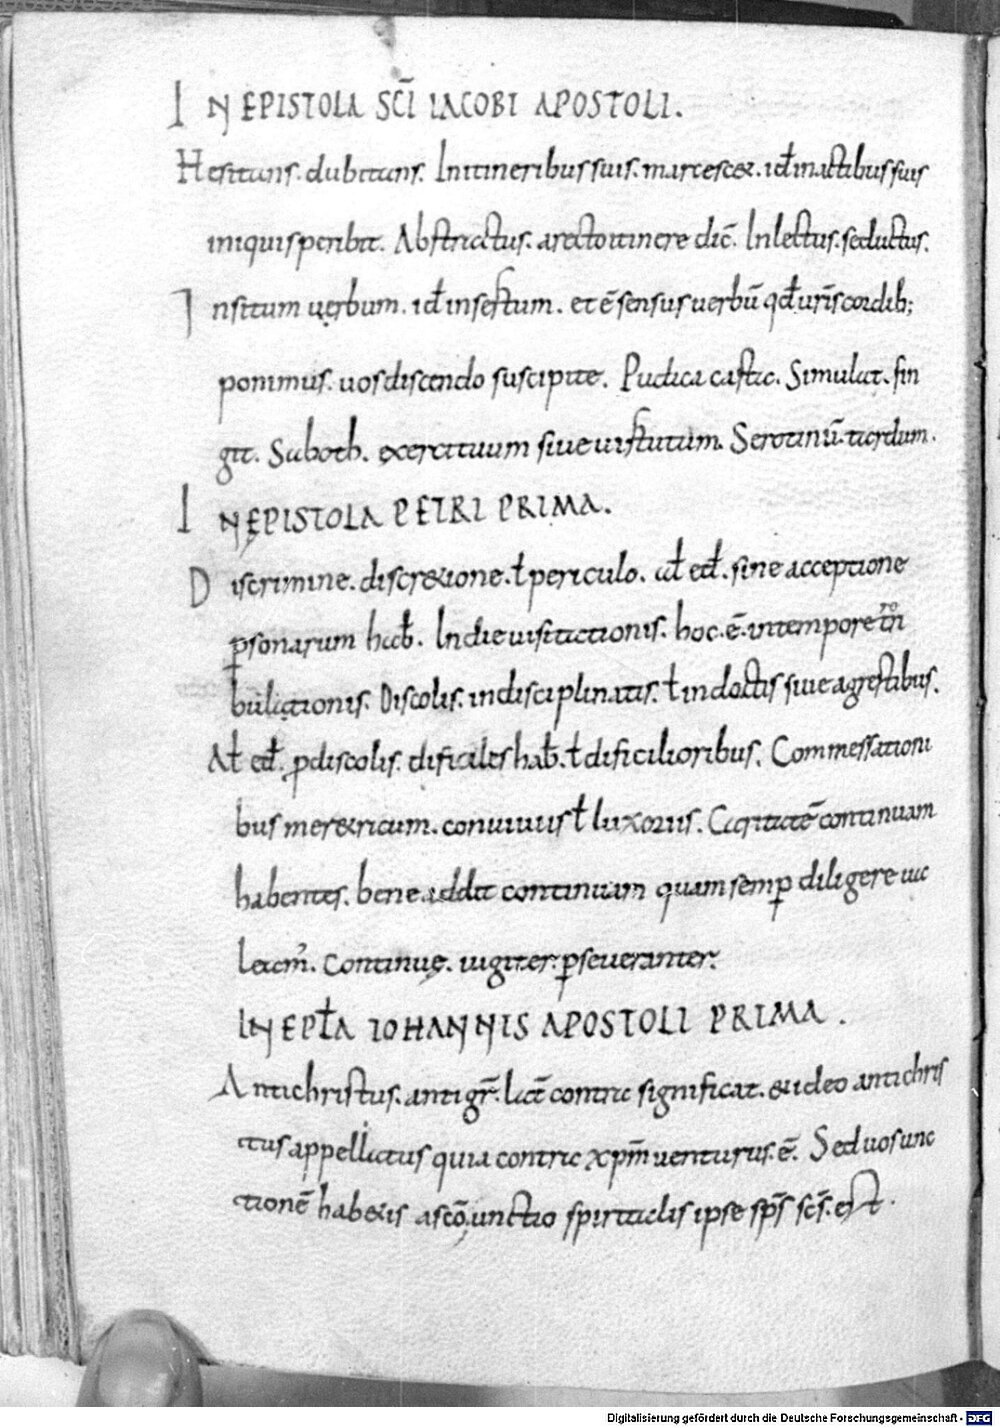 IN EPISTOLA SC̄I IACOBI APOSTOLI.
Hesitans. dubitans. In itineribus suis. marcescet. id̄ in actibus suis
iniquis peribit. Abstractus. a recto itinere dic̄. Inlectus. seductus.
Insitum uerbum. id̄ insertum. et ē sensus uerbū qd̄ ur̄is cordib;
ponimus. uos discendo suscipite. Pudica casta. Simulat. fin
git. Saboth. exercituum siue uirtutum. Serotinū. tardum.
IN EPISTOLA PETRI PRIMA.
Discrimine. discretione. ł periculo. al̄ ed̄. sine acceptione
p̱sonarum hab̄. In die uisitationis. hoc. ē. in tempore tri
bulationis. Discolis. indisciplinatis. ł indoctis siue agrestibus.
Al̄ ed̄. p̱ discolis. dificiles hab̄. ł dificilioribus. Commessationi
bus meretricum. conuiuiis ł luxoriis. Caritatē continuam
habentes. bene addit continuam quam semp̱ diligere ua
leam̓. Continuę. iugiter. p̱seueranter.
IN EPŁA IOHANNIS APOSTOLI PRIMA.
Antichristus. anti gr̄. lat̄ contra significat. et ideo antichris
tus appellatus quia contra xp̄m uenturus. ē. Sed uos unc
tionē habetis a sc̄o, unctio spiritalis ipse sp̄s sc̄s. est.